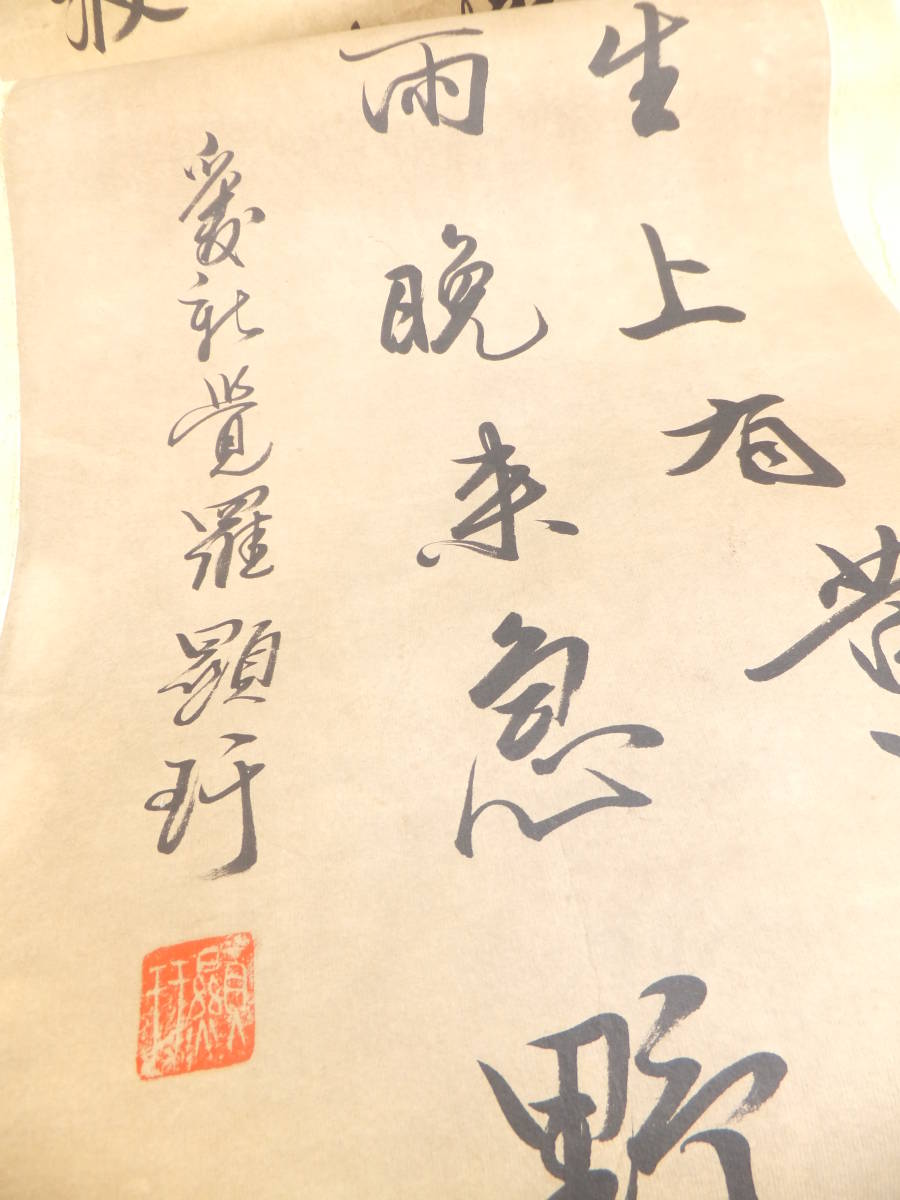 生上有黃
雨晚來急野
愛新覺羅顯玗
顯玗